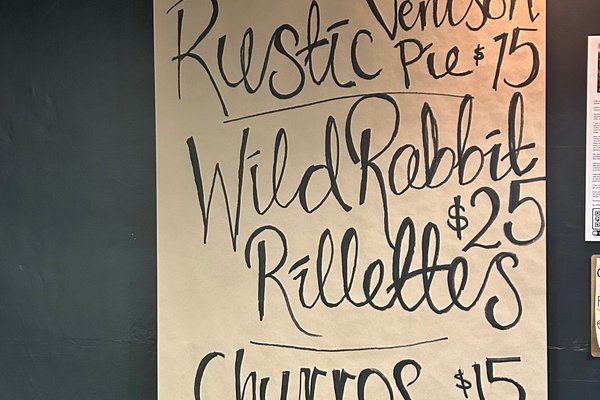 Rustic Venison
Pie $15
Wild Rabbit
$25
Rillettes
Churros $15